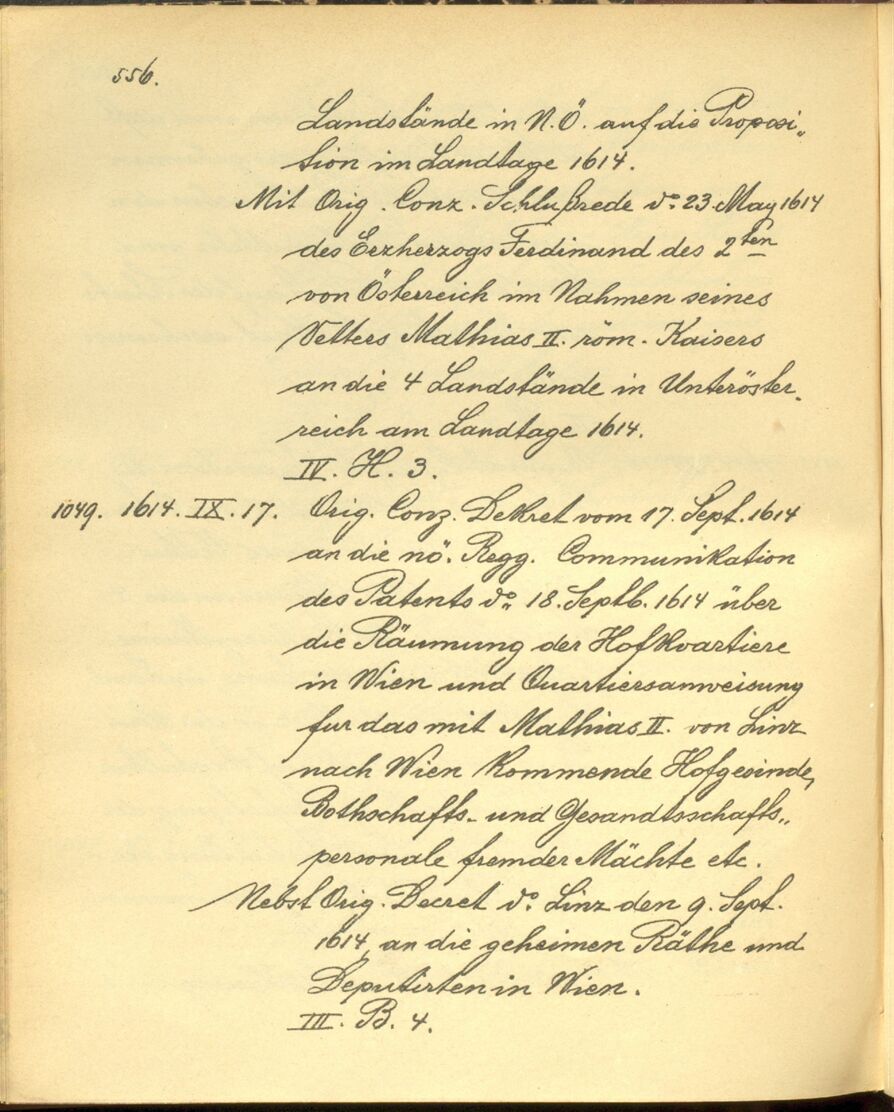 556.
Landstände in N.Ö. auf die Proposi„
tion im Landtage 1614.
Mit Orig. Conz. Schlußrede do. 23. May 1614
des Erzherzogs Ferdinand des 2ten
von Österreich im Nahmen seines
Vetters Mathias II. röm. Kaisers
an die 4 Landstände in Unteröster-
reich am Landtage 1614.
IV. H. 3.
1049. 1614. IX. 17. Orig. Conz. Dekret vom 17. Sept. 1614
an die nö. Regg. Communikation
des Patents do. 18. Septb. 1614 über
die Räumung der Hofkvartiere
in Wien und Quartiersanweisung
fur das mit Mathias II. von Linz
nach Wien kommende Hofgesinde,
Bothschafts- und Gesandtsschafts„
personale fremder Mächte etc.
Nebst Orig. Decret do. Linz den 9. Sept.
1614, an die geheimen Räthe und
Deputirten in Wien.
III. B. 4.